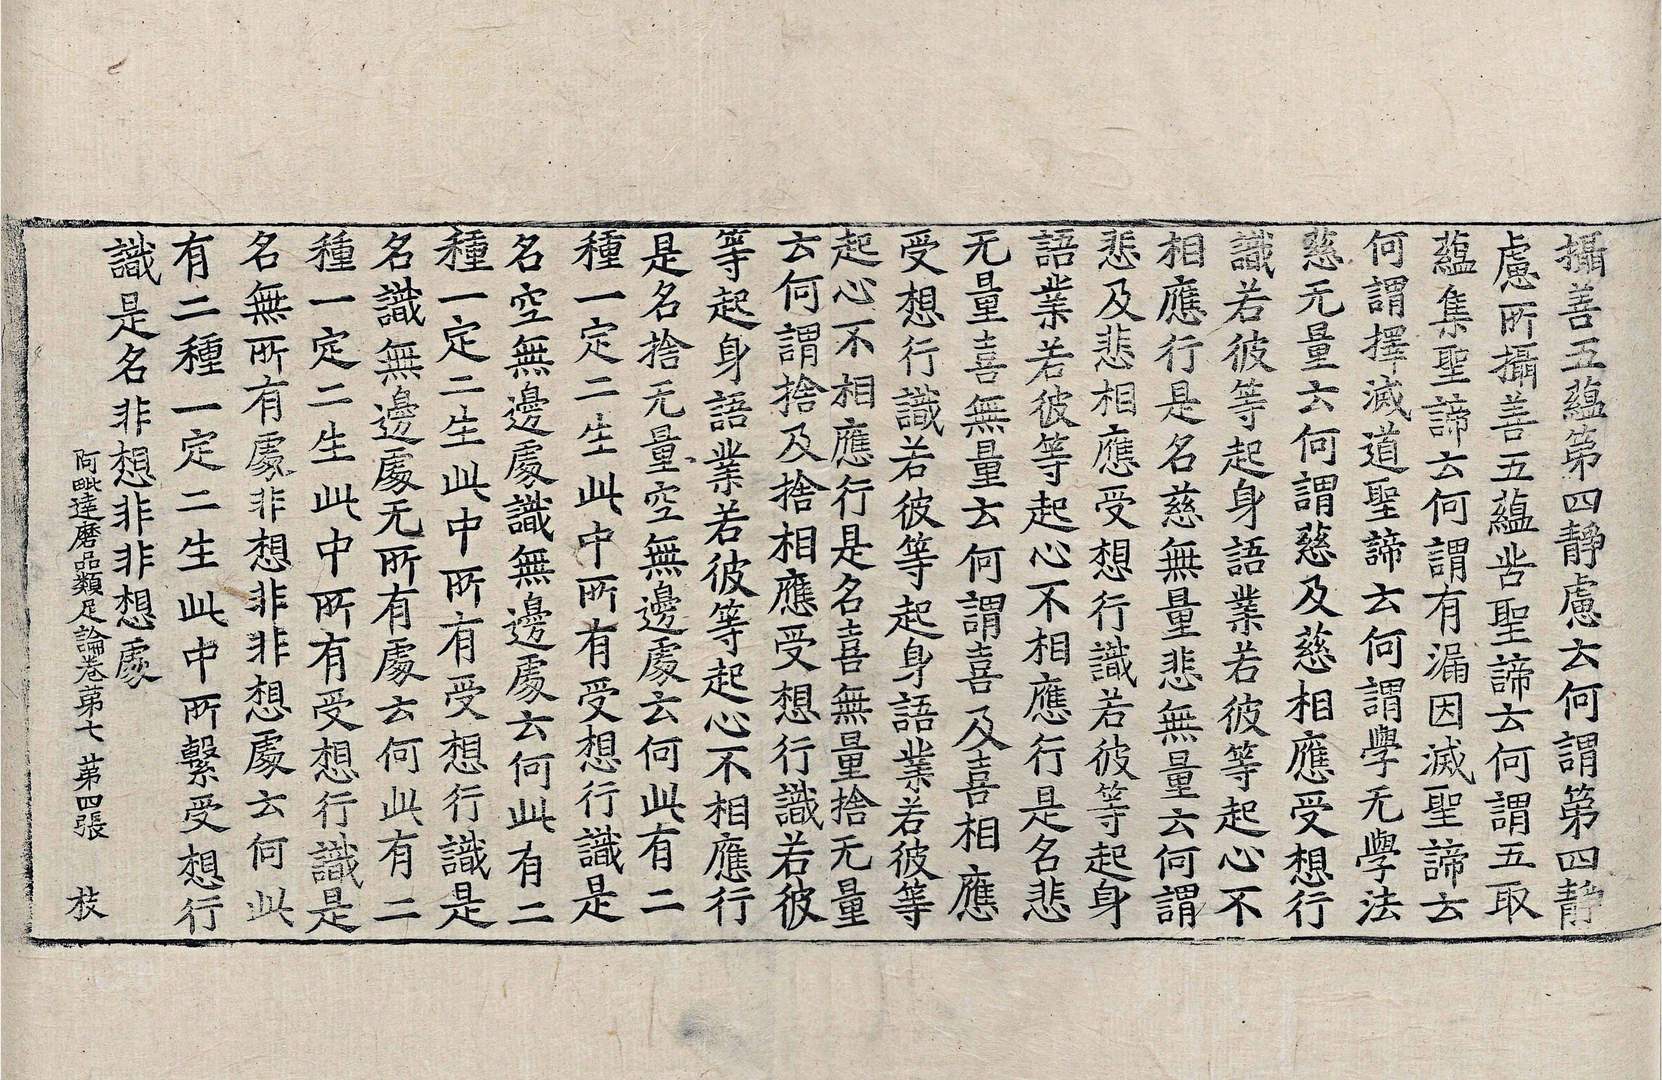 攝善五蘊第四靜慮云何謂第四靜
慮所攝善五蘊苦聖諦云何謂五取
蘊集聖諦云何謂有漏因滅聖諦云
何謂擇滅道聖諦云何謂學无學法
慈无量云何謂慈及慈相應受想行
識若彼等起身語業若彼等起心不
相應行是名慈無量悲無量云何謂
悲及悲相應受想行識若彼等起身
語業若彼等起心不相應行是名悲
无量喜無量云何謂喜及喜相應
受想行識若彼等起身語業若彼等
起心不相應行是名喜無量捨无量
云何謂捨及捨相應受想行識若彼
等起身語業若彼等起心不相應行
是名捨无量空無邊處云何此有二
種一定二生此中所有受想行識是
名空無邊處識無邊處云何此有二
種一定二生此中所有受想行識是
名識無邊處无所有處云何此有二
種一定二生此中所有受想行識是
名無所有處非想非非想處云何此
有二種一定二生此中所繫受想行
識是名非想非非想處
阿毗達磨品類足論卷苐七 苐四張 枝